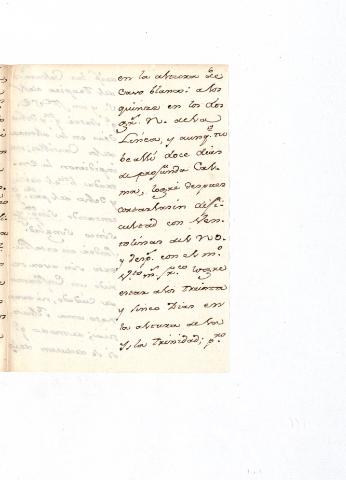 en la altura de
Cavo blanco: a los
quince en los dos
gr.s N. de la
Linea, y aunq.e no
be alli doce dias
de profunda Cal-
ma, logré despues
cortarla sin difi-
cultad con Ven-
tolinas del NO.
y desp.s con el m.o
viento logré
estar a los treinta
y sinco Dias en
la altura de la
Isla trinidad; p.ro